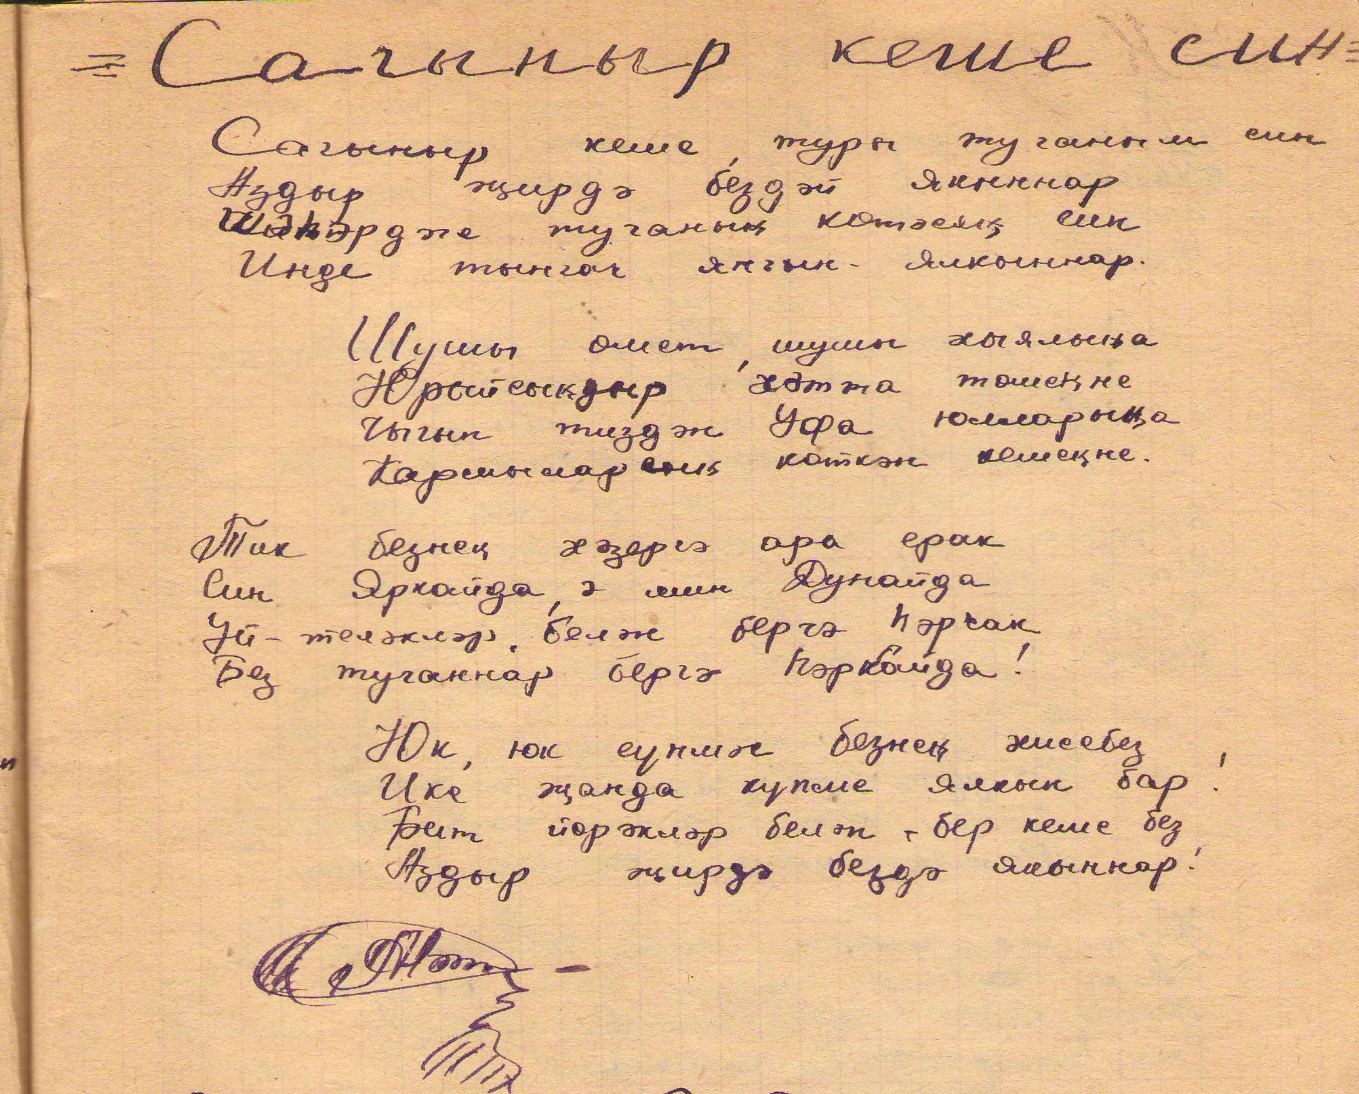 = Сагыныр кеше син =
Сагыныр кеше, туры туганым син
Аздыр җирдә бездәй якыннар
туганың көтәсең син
Инде тынгач янгын - ялкыннар.
Шушы өмет, шушы хыялыңа
Юрыйсыңдыр хәтта төшеңне
Чыгып тиздән Уфа юлларыңа
Каршыларсың көткән кешеңне.
Тик безнең хәзергә ара ерак
Син Яркайда, ә мин Дунайда
Уй-теләкләр белән бергә һәрчак
Без туганнар бергә һәркайда!
Юк, юк сүнмәс безнең хисебез
Ике җанда күпме ялкын бар!
Бит йөрәкләр белән - бер кеше без
Аздыр җирдә бездә якыннар!